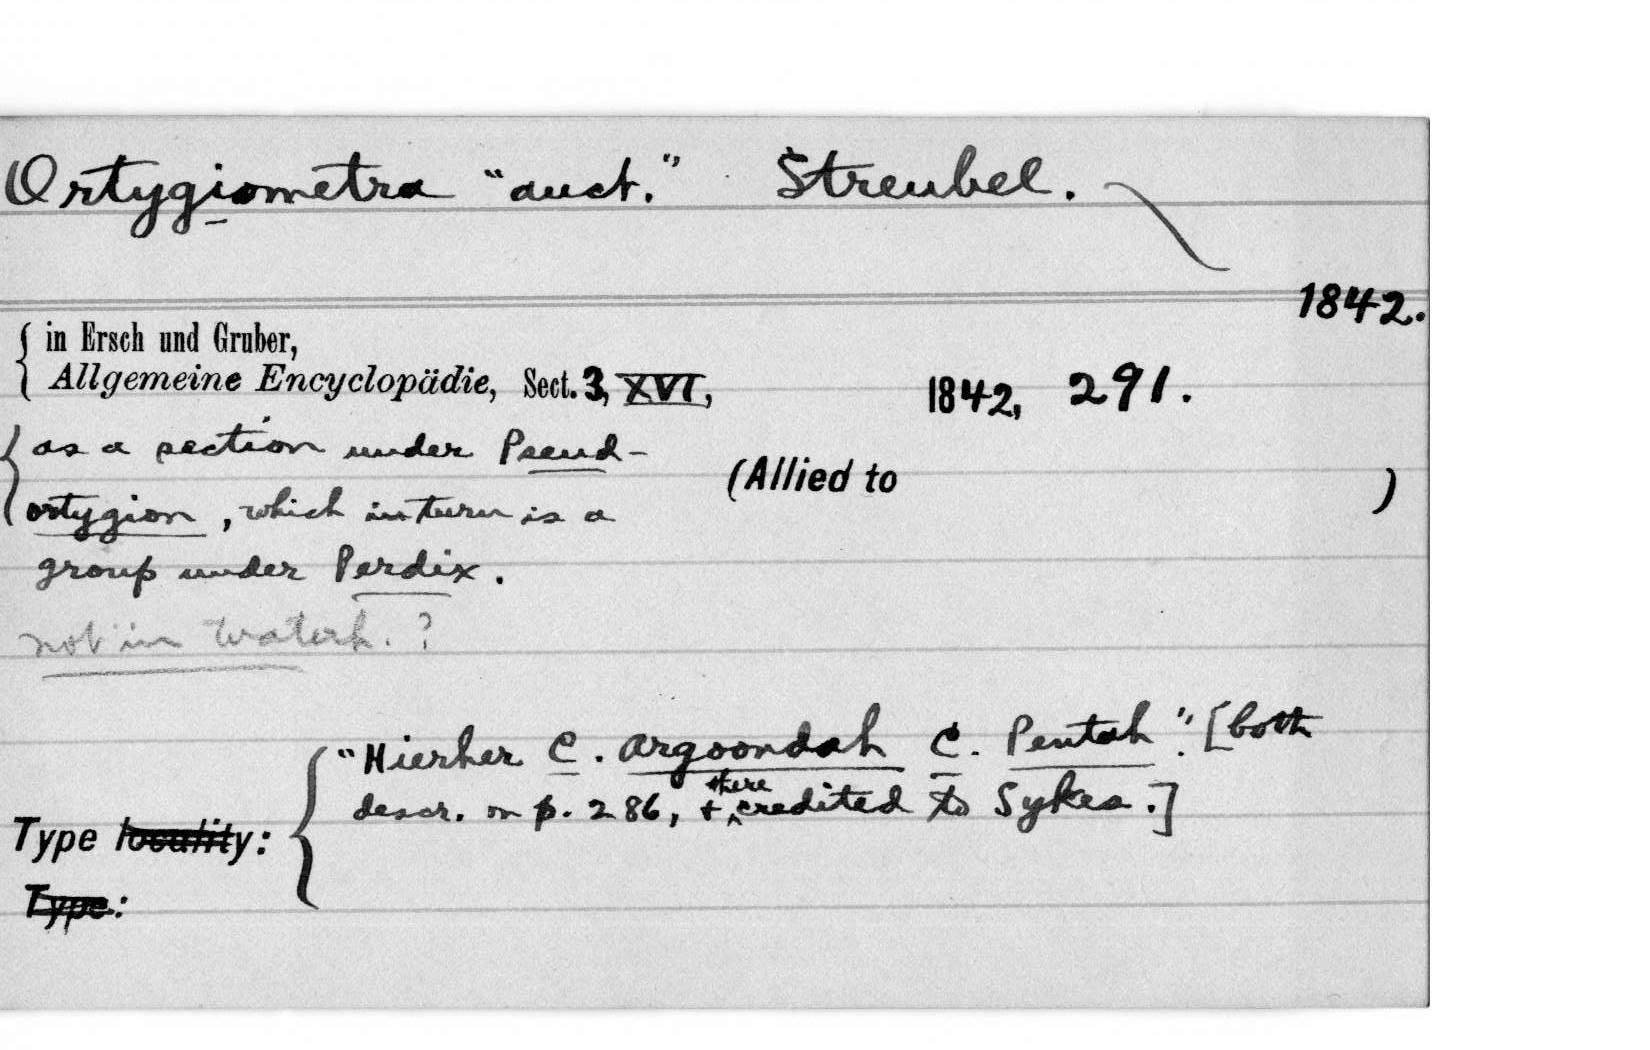 Ortygiometra "auct." Streubel.
1842.
in Ersch und Gruber,
Allgemeine Encyclopädie, Sect. 3, XVI, 1842, 291.
as a section under Pseud-
ortygion, which in turn is a
(Allied to )
group under Perdix.
not in Waterh. ?
"Hierher C. Argoondah C. Pentah". [both
descr. on p. 286, + there credited to Sykes.]
Type locality:
Type: